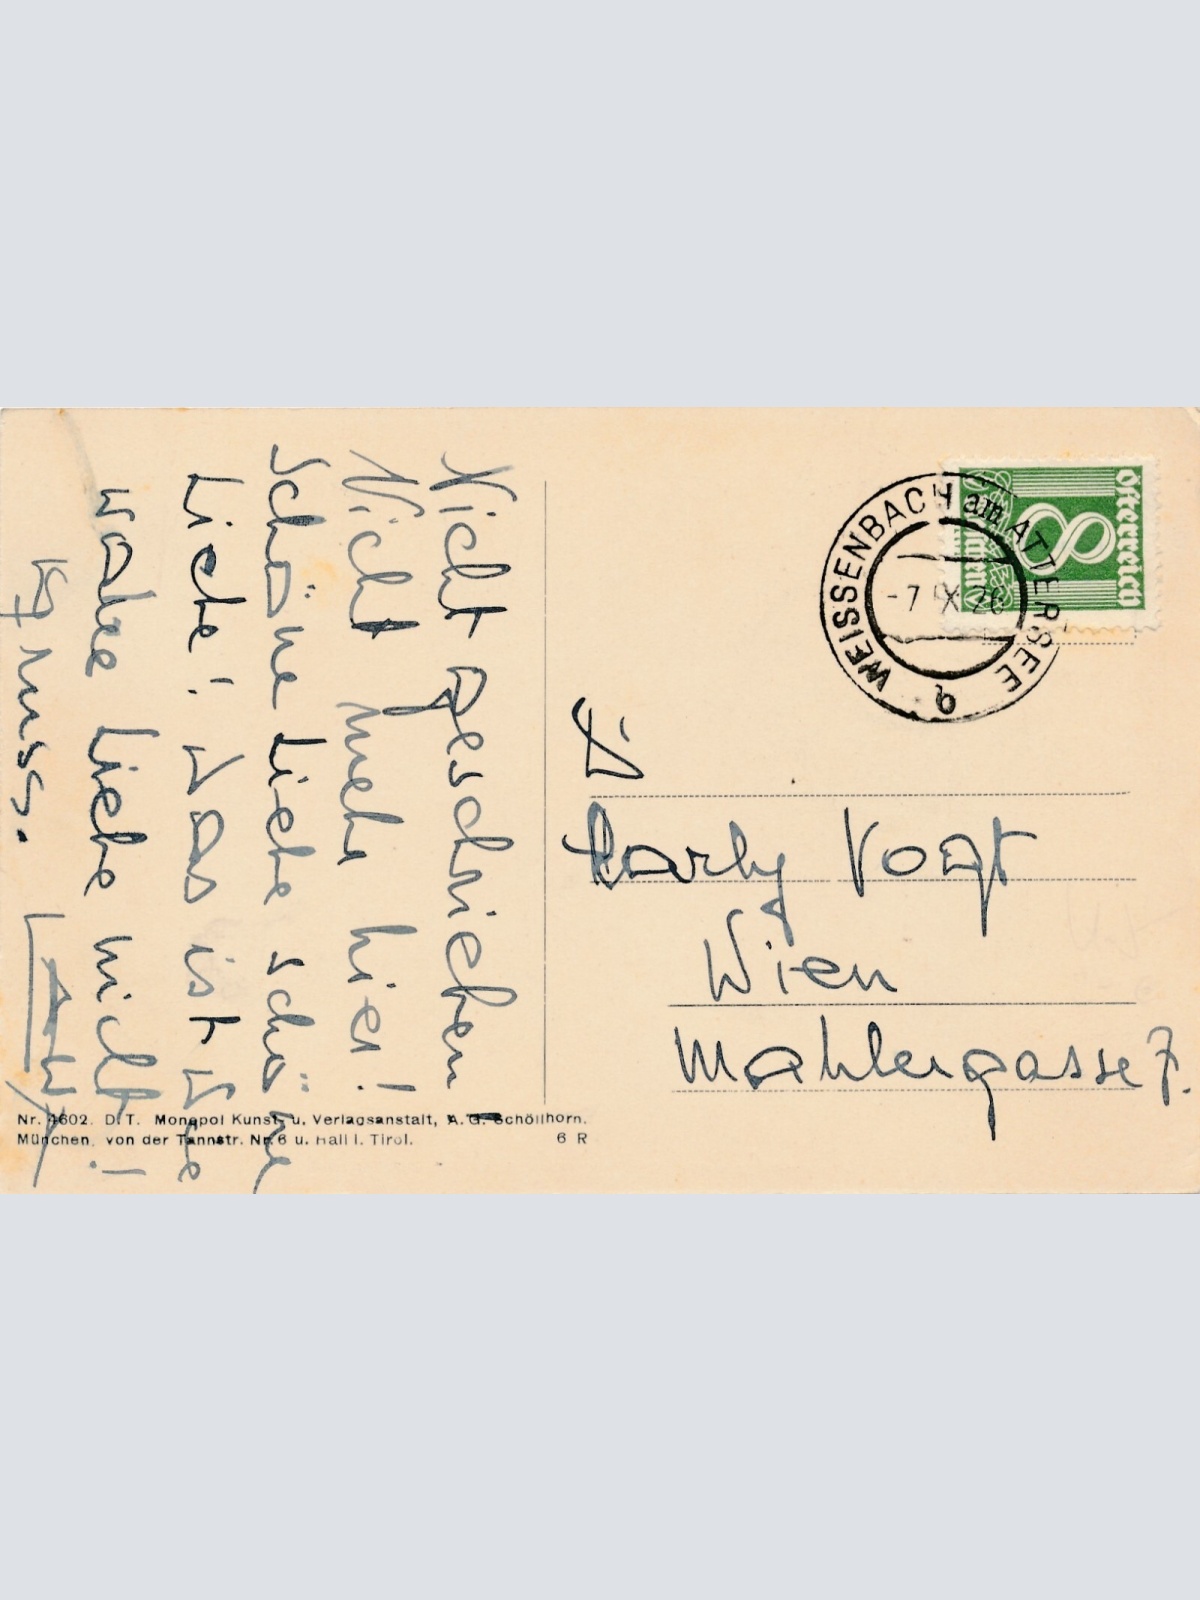 Nicht geschrieben!
Nicht mehr hier!
Schöne Liebe schöne
Liebe! Das ist
oder Liebe nicht!
Kuss.
Österreich
8
WEISSENBACH am ATTERSEE
-7 IX 26
b
Karly Vogt
Wien
Mahlergasse 7.
Nr. 4602. D. T. Monopol Kunst, u. Verlagsanstalt, A. G. Schöllhorn.
München, von der Tannstr. Nr. 6 u. Hall i. Tirol.
6 R